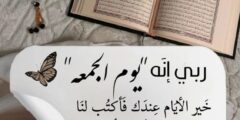 ربي إنَه "يوم الجمعه"
خَير الأيَام عِندَك فَأكتُب لنَا